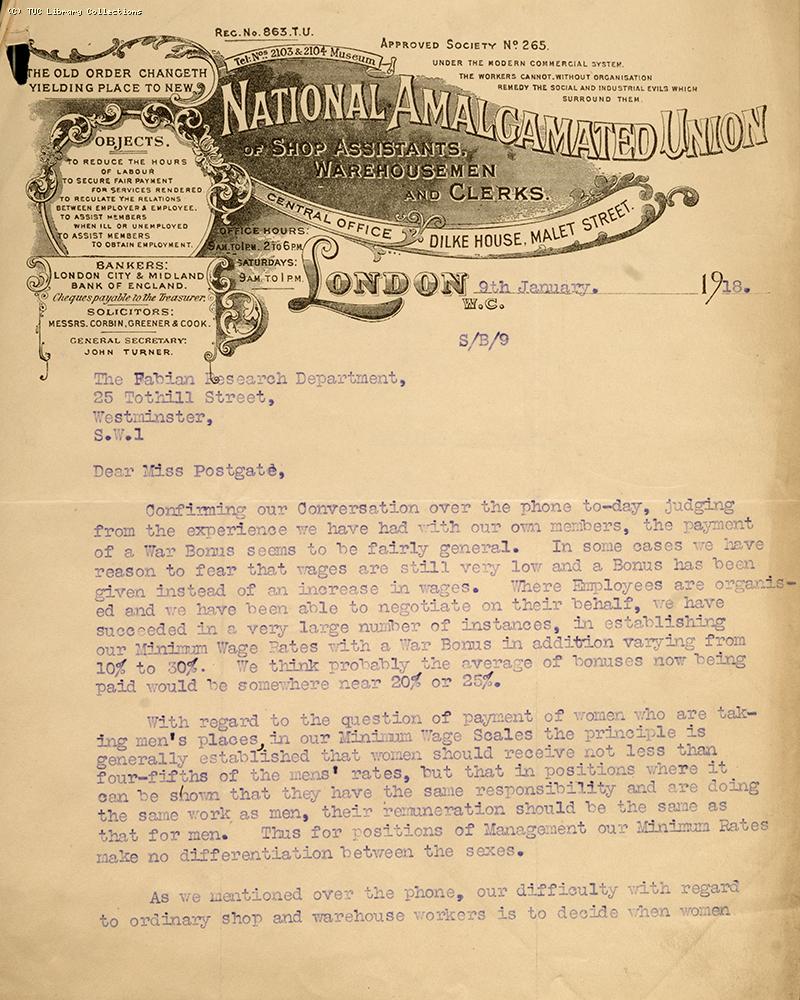 (C) TUC Library Collections
REG. No. 863. T.U.
APPROVED SOCIETY No 265.
Tel: Nos 2103 & 2104 Museum
UNDER THE MODERN COMMERCIAL SYSTEM.
THE WORKERS CANNOT, WITHOUT ORGANISATION
REMEDY THE SOCIAL AND INDUSTRIAL EVILS WHICH
SURROUND THEM.
THE OLD ORDER CHANGETH
YIELDING PLACE TO NEW
NATIONAL AMALGAMATED UNION
OF SHOP ASSISTANTS,
WAREHOUSEMEN
AND CLERKS.
OBJECTS.
TO REDUCE THE HOURS
OF LABOUR
TO SECURE FAIR PAYMENT
FOR SERVICES RENDERED
TO REGULATE THE RELATIONS
BETWEEN EMPLOYER & EMPLOYEE.
TO ASSIST MEMBERS
WHEN ILL OR UNEMPLOYED
TO ASSIST MEMBERS
TO OBTAIN EMPLOYMENT.
CENTRAL OFFICE
DILKE HOUSE, MALET STREET.
OFFICE HOURS:
9 A.M. TO 1 P.M. 2 TO 6 P.M.
SATURDAYS:
9 A.M. TO 1 P.M.
BANKERS:
LONDON CITY & MIDLAND
BANK OF ENGLAND.
Cheques payable to the Treasurer.
SOLICITORS:
MESSRS. CORBIN, GREENER & COOK.
GENERAL SECRETARY:
JOHN TURNER.
LONDON 9th January. 1918.
W.C.
S/B/9
The Fabian Research Department,
25 Tothill Street,
Westminster,
S.W.1
Dear Miss Postgate,
Confirming our Conversation over the phone to-day, judging
from the experience we have had with our own members, the payment
of a War Bonus seems to be fairly general. In some cases we have
reason to fear that wages are still very low and a Bonus has been
given instead of an increase in wages. Where Employees are organis-
ed and we have been able to negotiate on their behalf, we have
succeeded in a very large number of instances, in establishing
our Minimum Wage Rates with a War Bonus in addition varying from
10% to 30%. We think probably the average of bonuses now being
paid would be somewhere near 20% or 25%.
With regard to the question of payment of women who are tak-
ing men's places, in our Minimum Wage Scales the principle is
generally established that women should receive not less than
four-fifths of the mens' rates, but that in positions where it
can be shown that they have the same responsibility and are doing
the same work as men, their remuneration should be the same as
that for men. Thus for positions of Management our Minimum Rates
make no differentiation between the sexes.
As we mentioned over the phone, our difficulty with regard
to ordinary shop and warehouse workers is to decide when women